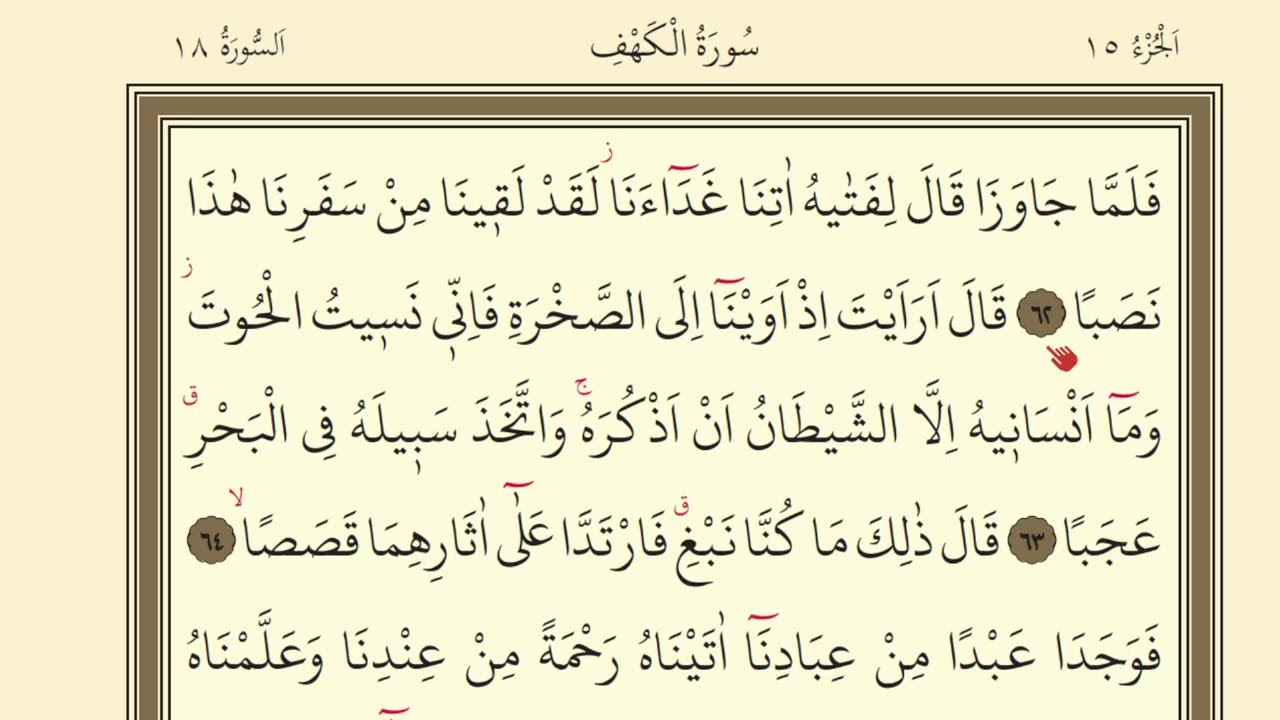 اَلْجُزْءُ ١٥ سُورَةُ الْكَهْفِ اَلسُّورَةُ ١٨
فَلَمَّا جَاوَزَا قَالَ لِفَتٰيهُ اٰتِنَا غَدَٓاءَنَاۘ لَقَدْ لَقٖينَا مِنْ سَفَرِنَا هٰذَا
نَصَبًا ﴿٦٢﴾ قَالَ اَرَاَيْتَ اِذْ اَوَيْنَٓا اِلَى الصَّخْرَةِ فَاِنّٖى نَسٖيتُ الْحُوتَؗ
وَمَٓا اَنْسَانٖيهُ اِلَّا الشَّيْطَانُ اَنْ اَذْكُرَهُۚ وَاتَّخَذَ سَبٖيلَهُ فِى الْبَحْرِࣗ
عَجَبًا ﴿٦٣﴾ قَالَ ذٰلِكَ مَا كُنَّا نَبْغِࣗ فَارْتَدَّا عَلٰٓى اٰثَارِهِمَا قَصَصًاۙ ﴿٦٤﴾
فَوَجَدَا عَبْدًا مِنْ عِبَادِنَٓا اٰتَيْنَاهُ رَحْمَةً مِنْ عِنْدِنَا وَعَلَّمْنَاهُ